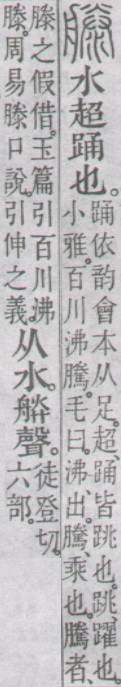 滕
水超踊也。
踊依韵會本从足。超、踊皆跳也。跳、躍也。
小雅。百川沸騰。毛曰。沸、出。騰、乘也。騰者、
滕之假借。玉篇引百川沸
滕。周易滕口說。引伸之義。
从水。朕聲。
徒登切。
六部。